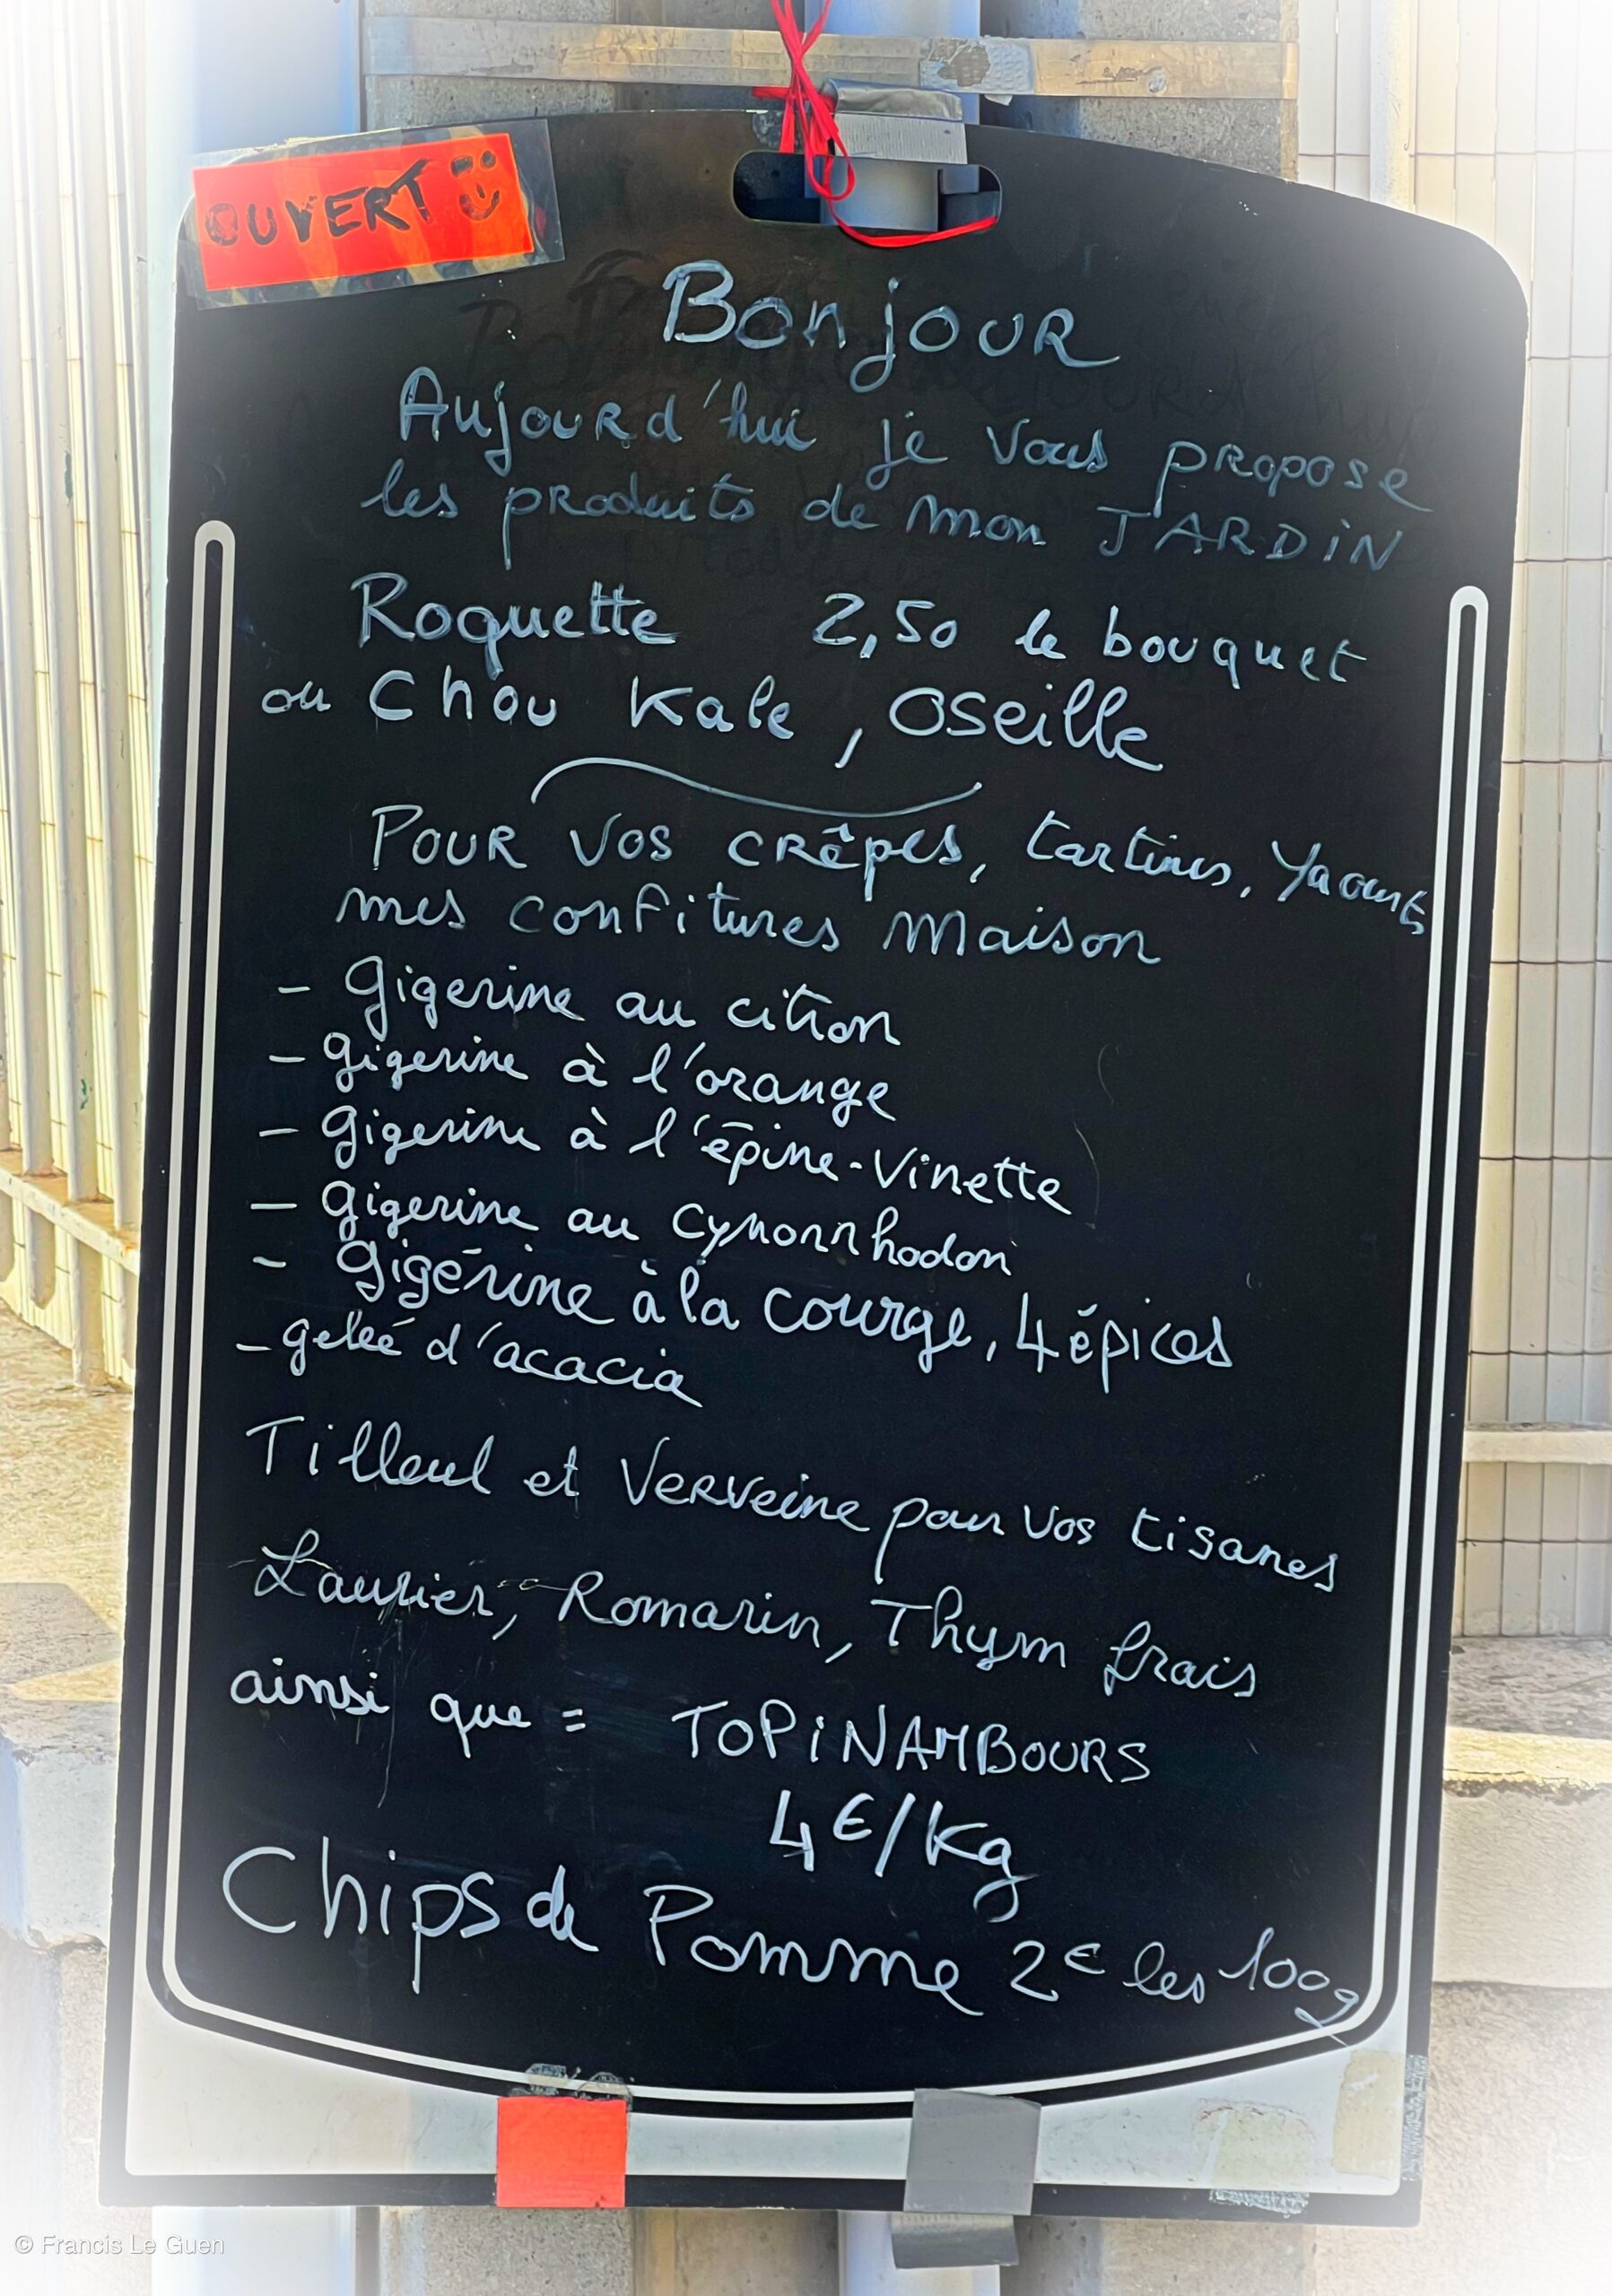 OUVERT
Bonjour
Aujourd'hui je vous propose
les produits de mon JARDiN
Roquette 2,50 le bouquet
ou Chou Kale, Oseille
Pour vos crêpes, tartines, Yaourts
mes confitures Maison
- Gigerine au citron
- Gigerine à l'orange
- Gigerine à l'épine-Vinette
- Gigerine au Cynorrhodon
- Gigérine à la courge, 4 épices
- gelée d'acacia
Tilleul et Verveine pour Vos tisanes
Laurier, Romarin, Thym frais
ainsi que = TOPiNAMBOURS
4€/Kg
Chips de Pomme 2€ les 100g
© Francis Le Guen